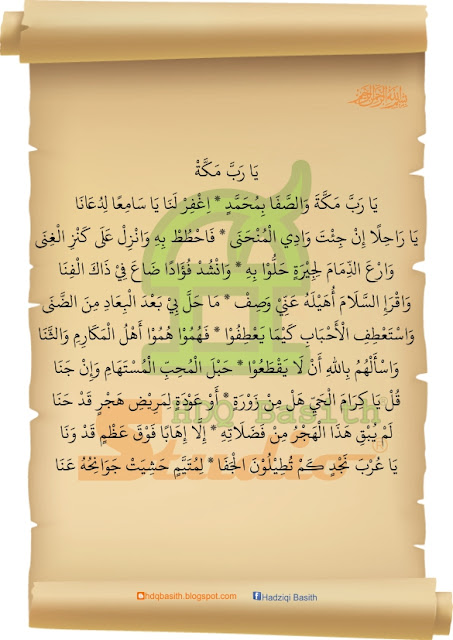 يَا رَبَّ مَكَّةْ
يَا رَبَّ مَكَّةَ وَالصَّفَا بِمُحَمَّدٍ * اِغْفِرْ لَنَا يَا سَامِعًا لِدُعَانَا
يَا رَاحِلًا إِنْ جِئْتَ وَادِي الْمُنْحَنَى * فَاحْطُطْ بِهِ وَانْزِلْ عَلَى كَنْزِ الْغِنَى
وَارْعَ الذِّمَامَ لِجِيْرَةٍ حَلُّوْا بِهِ * وَانْشُدْ فُؤَادًا ضَاعَ فِيْ ذَاكَ الْفِنَا
وَاقْرَإِ السَّلَامَ أُهَيْلَهُ عَنِّيْ وَصِفْ * مَا حَلَّ بِيْ بَعْدَ الْبِعَادِ مِنَ الضَّنَى
وَاسْتَعْطِفِ الْأَحْبَابَ كَيْمَا يَعْطِفُوْا * فَهُمُوْا هُمُوْا أَهْلُ الْمَكَارِمِ وَالثَّنَا
وَاسْأَلْهُمُ بِاللهِ أَنْ لَا يَقْطَعُوْا * حَبْلَ الْمُحِبِّ الْمُسْتَهَامِ وَإِنْ جَنَا
قُلْ يَا كِرَامَ الْحَيِّ هَلْ مِنْ زَوْرَةٍ * أَوْ عَوْدَةٍ لِمَرِيْضِ هَجْرٍ قَدْ حَنَا
لَمْ يُبْقِ هَذَا الْهَجْرُ مِنْ فَضَلَاتِهِ * إِلَّا إِهَابًا فَوْقَ عَظْمٍ قَدْ وَنَا
يَا عُرْبَ نَجْدٍ كَمْ تُطِيْلُوْنَ الْجَفَا * لِمُتَيَّمٍ حَشِيَتْ جَوَانِحُهُ عَنَا
HDQ Basith
Studio
hdqbasith.blogspot.com
Hadziqi Basith